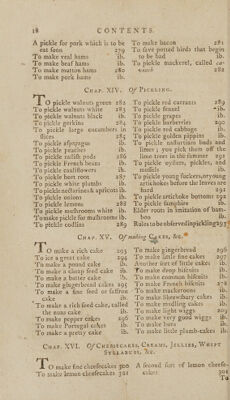 18 CONTENTS.
A pickle for pork which is to be eat soon 279
To make veal hams ib.
To make beaf hams ib.
To make mutton hams 280
To make pork hams ib.
To make bacon 281
To save potted birds that begin to be bad ib.
To pickle mackrel, called 282
CHAP. XIV. Of PICKLING.
TO pickle walnuts green 282
To pickle walnuts white 283
To pickle walnuts black ib.
To pickle gerkins 284
To pickle large cucumbers in slices 284
To pickle asparagus ib.
To pickle peaches ib.
To pickle radish pods 286
To pickle French beans ib.
To pickle cauliflowers ib.
To pickle beet root 287
To pickle white plumbs ib.
To pickle nectarines & apricots ib.
To pickle onions ib.
To pickle lemons 288
To pickle mushrooms white ib.
To make pickle for mushrooms ib.
To pickle codlins 289
To pickle red currants 289
To pickle fennel ib.
To pickle grapes ib.
To pickle barberries 290
To pickle red cabbage ib.
To pickle golden pippins ib.
To pickle nasturtium buds and limes; you pick them off the lime trees in the summer 291
To pickle oysters, cockles, and mussels ib.
To pickle young suckers, or young artichokes before the leaves are hard 292
To pickle artichoke bottoms 292
To pickle samphire ib.
Elder roots in imitation of bamboo ib.
Rules to be observed in pickling 293
CHAP. XV. Of making CAKES, &c.
TO make a rich cake 293
To ice a great cake 294
To make a pound cake ib.
To make a cheap seed cake ib.
To make a butter cake ib.
To make gingerbread cakes 295
To make a fine seed or saffron cake ib.
To make a rich seed cake, called the nuns cake ib.
To make pepper cakes 296
To make Portugal cakes ib.
To make a pretty cake ib.
To make gingerbread 296
To make little fine cakes 297
Another sort of little cakes ib.
To make drop biscuits ib.
To make common biscuits ib.
To make French biskuits 278
To make mackeroons ib.
To make Shrewsbury cakes ib.
To make madling cakes ib.
To make light wiggs 299
To make very good wiggs ib.
To make buns ib.
To make little plumb-cakes ib.
CHAP. XVI. Of CHEESECAKES, CREAMS, JELLIES, WHIPT SYLLABUBS, &c.
TO make fine cheesecakes 300
To make lemon cheesecakes 301
A second sort of lemon cheesecakes 301
To